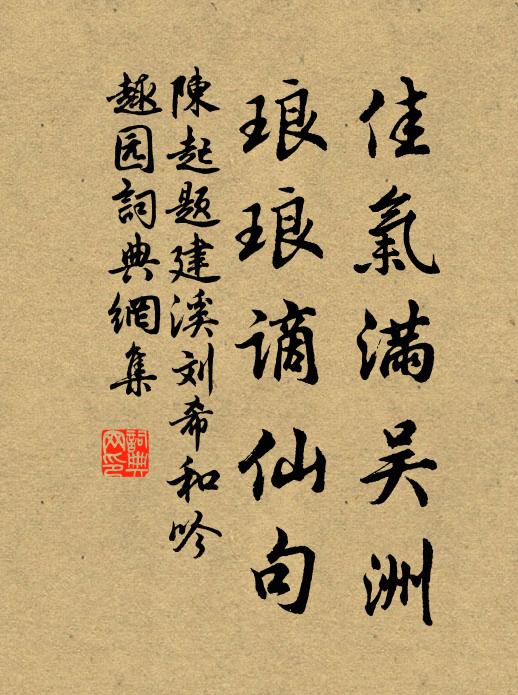 佳氣滿吴洲
琅琅谪仙句
陳起题建溪刘希和吟
趣园詞典網集
詞典网印